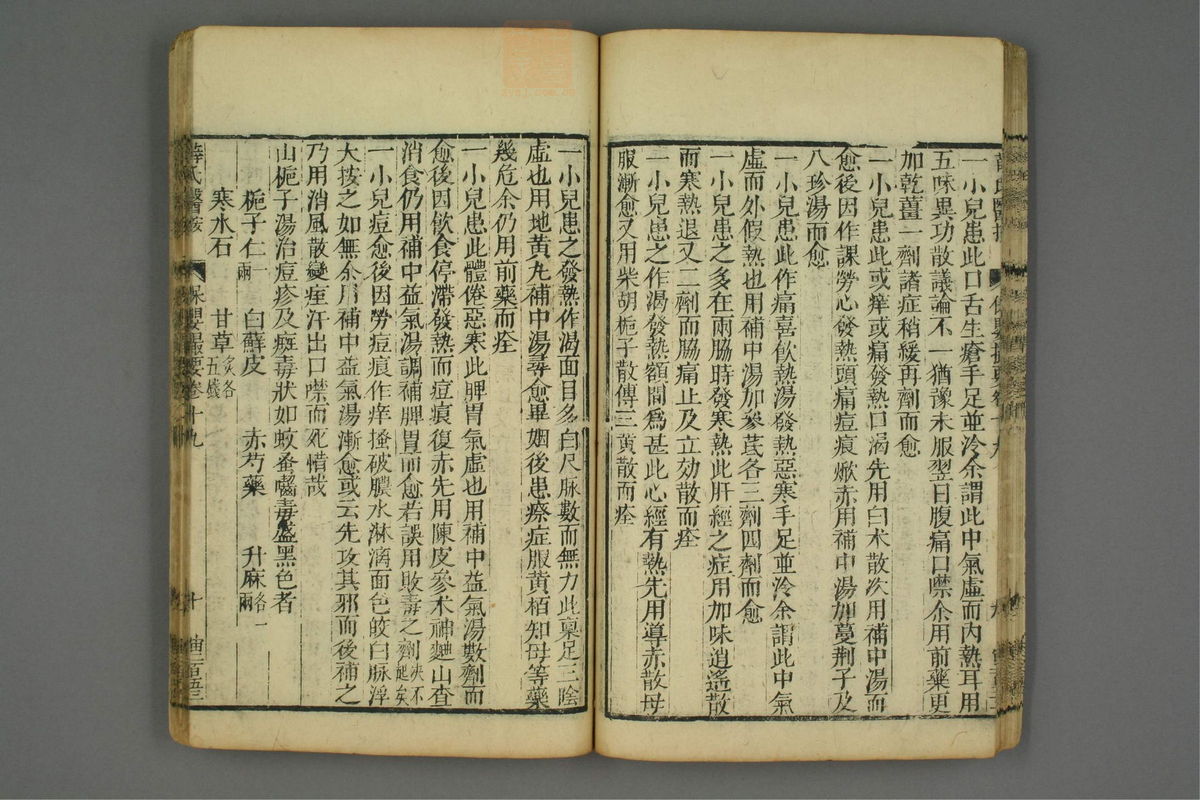 一小兒患此口舌生瘡手足並冷余謂此中氣虛而內熱耳用
五味異功散議論不一猶豫未服翌日腹痛口噤余用前藥更
加乾薑一劑諸症稍緩再劑而愈
一小兒患此或痒或痛發熱口渴先用白朮散次用補中湯而
愈後因作課勞心發熱頭痛痘痕焮赤用補中湯加蔓荆子及
八珍湯而愈
一小兒患此作痛喜飲熱湯發熱惡寒手足並冷余謂此中氣
虛而外假熱也用補中湯加參芪各三劑四劑而愈
一小兒患之多在兩脇時發寒熱此肝經之症用加味逍遙散
而寒熱退又二劑而脇痛止及立効散而痊
一小兒患之作渴發熱額間爲甚此心經有熱先用導赤散母
服漸愈又用柴胡梔子散傳三黃散而痊
一小兒患之發熱作渴面目多白尺脉數而無力此稟足三陰
虛也用地黃丸補中湯尋愈畢姻後患瘵症服黃栢知母等藥
幾危余仍用前藥而痊
一小兒患此體倦惡寒此脾胃氣虛也用補中益氣湯數劑而
愈後因飲食停滯發熱而痘痕復赤先用陳皮參朮神麯山查
消食仍用補中益氣湯調補脾胃而愈若誤用敗毒之劑決不起矣
一小兒痘愈後因勞痘痕作痒搔破膿水淋漓面色皎白脉浮
大按之如無余用補中益氣湯漸愈或云先攻其邪而後補之
乃用消風散變痙汗出口噤而死惜哉
山梔子湯治痘疹及癍毒狀如蚊蚤嚙毒盛黑色者
梔子仁一兩 白蘚皮 赤芍藥 升麻各一兩
寒水石 甘草炙各五錢
薛氏醫按 保嬰撮要卷十九 十